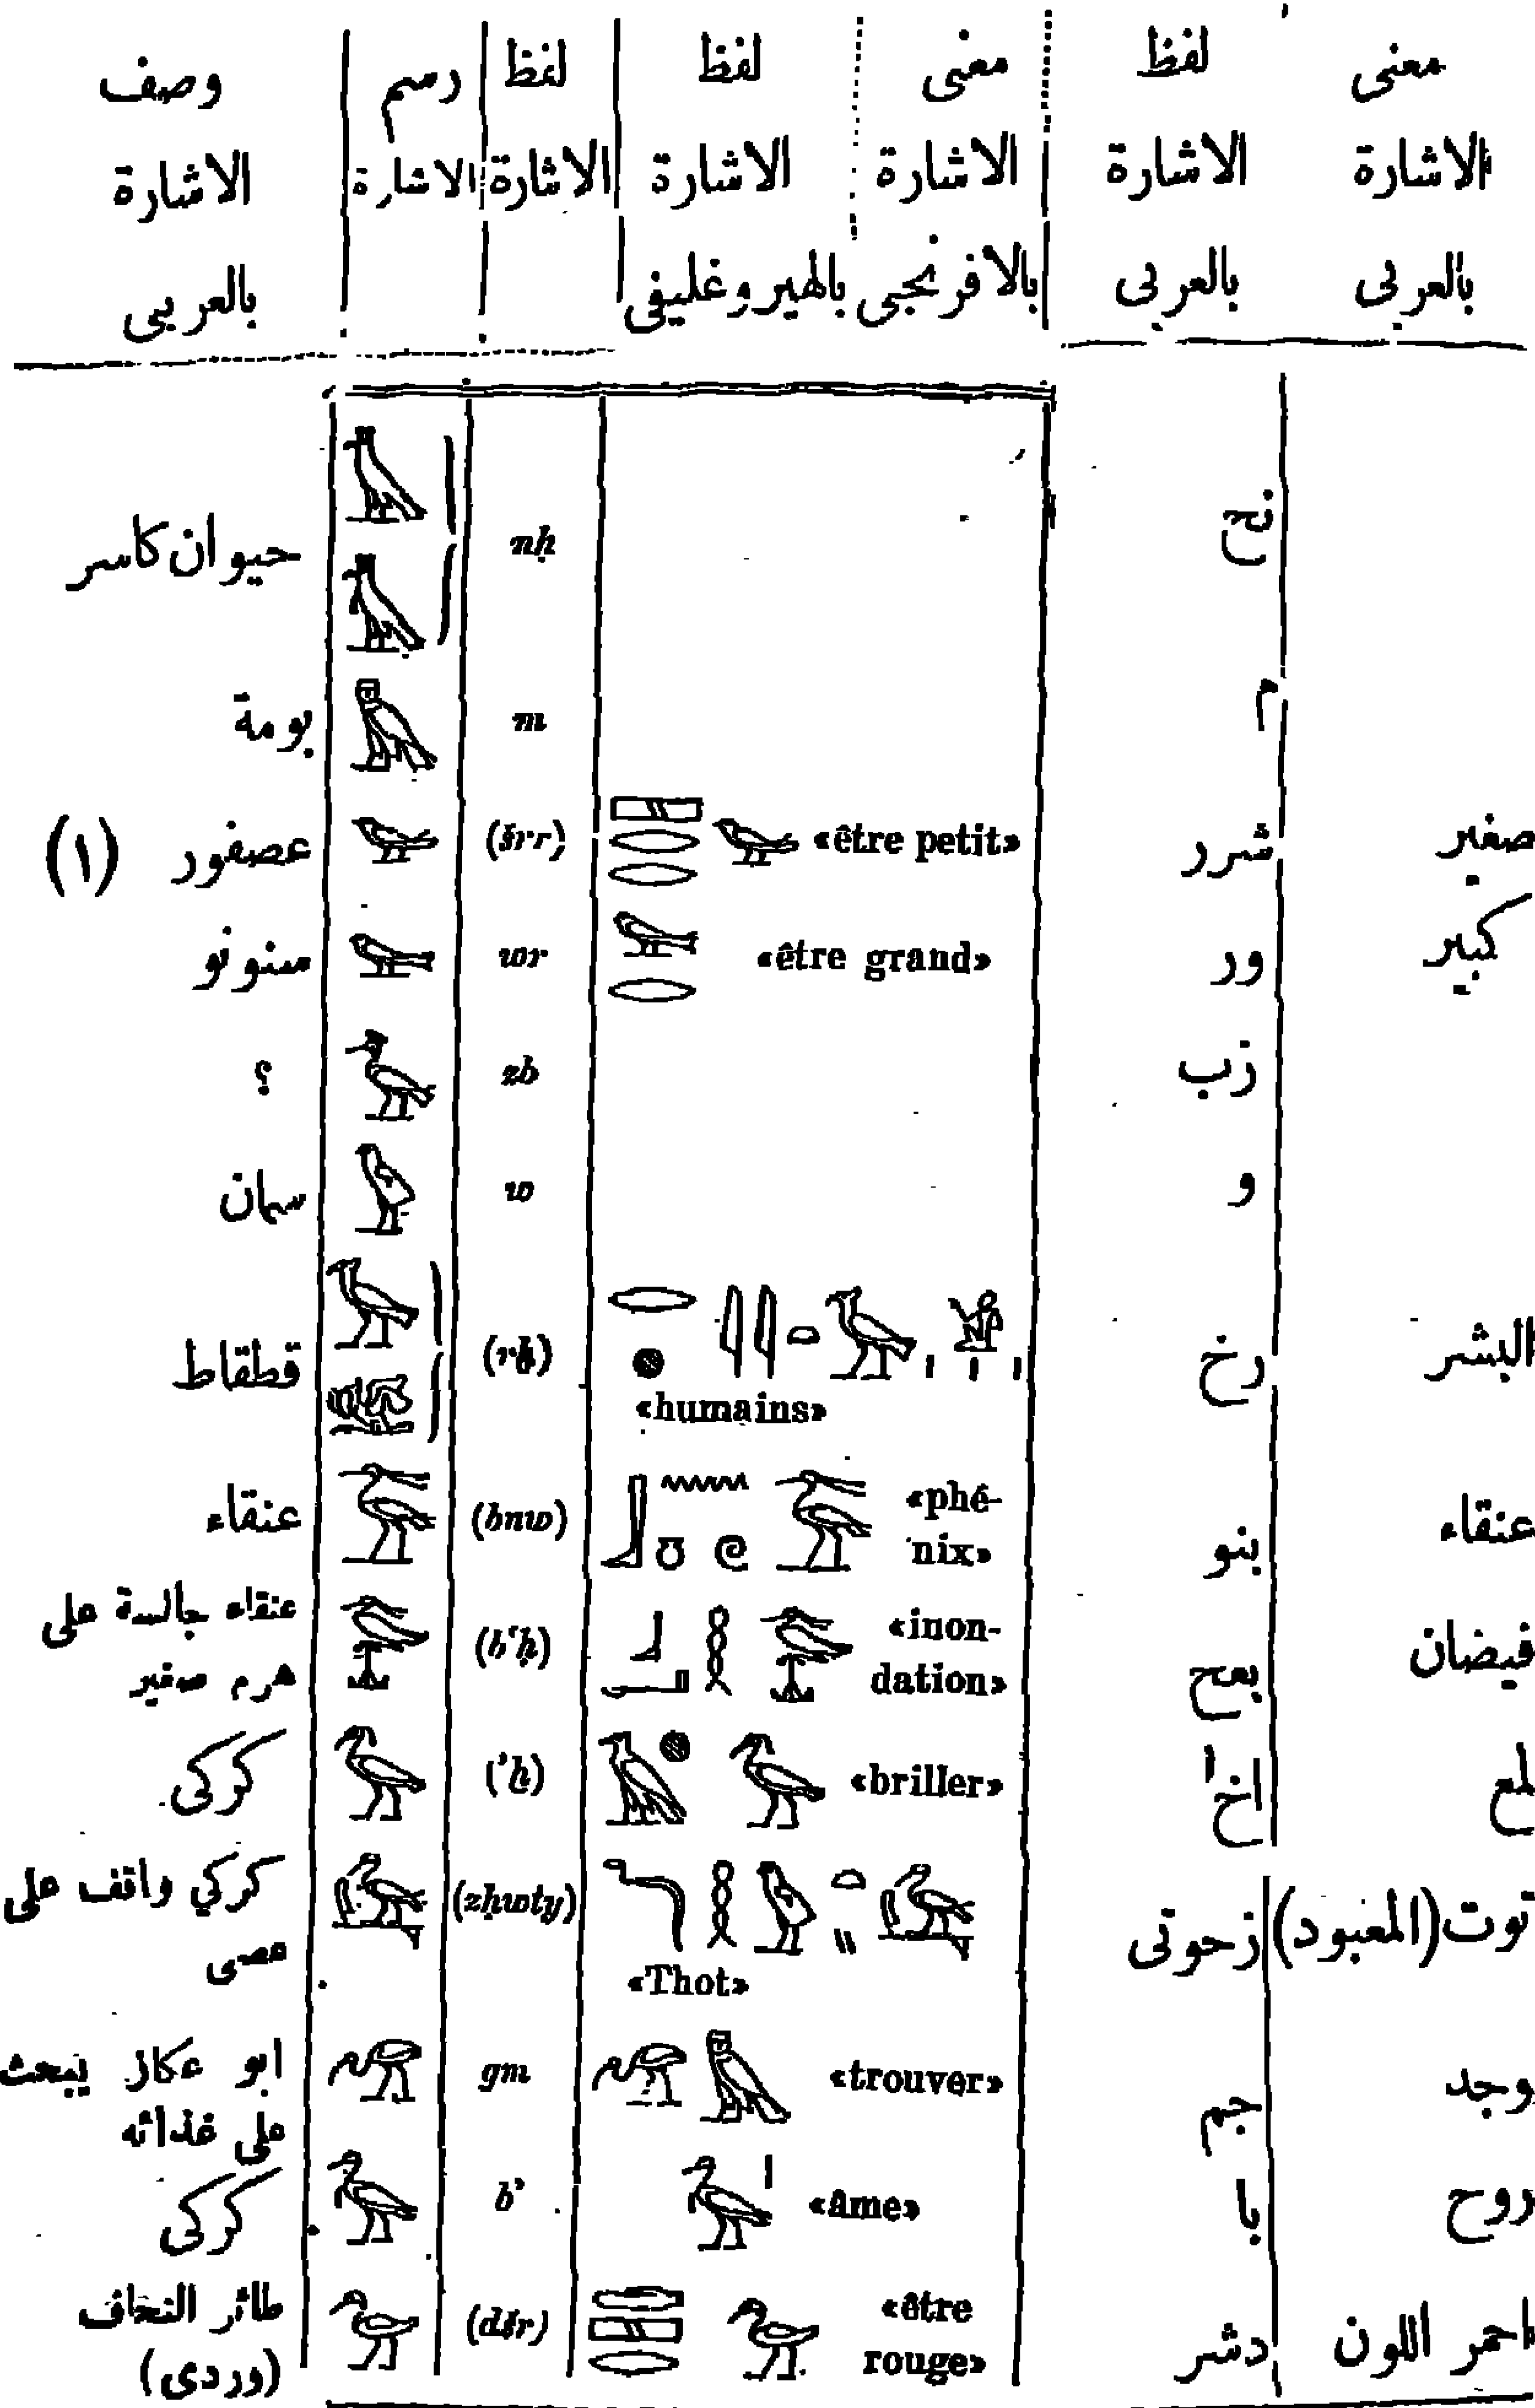 معنى | لفظ | معنى | لفظ | لفظ | رسم | وصف
الاشارة | الاشارة | الاشارة | الاشارة | الاشارة | الاشارة | الاشارة
بالعربى | بالعربى | بالافرنجى | بالهيروغليفى | بالعربى
نح | nḥ | حيوان كاسر
م | m | بومة
صغير | شرر | «être petit» | (šrr) | عصفور (١)
كبير | ور | «être grand» | wr | سنونو
زب | zb | ؟
و | w | سمان
البشر | رخ | «humains» | (rḫ) | قطقاط
عنقاء | بنو | «phé-nix» | (bnw) | عنقاء
فيضان | بعح | «inon-dation» | (bʿḥ) | عنقاء جالسة على هرم صغير
لمع | اخ | «briller» | (ʾḫ) | كركى
توت (المعبود) | زحوتى | «Thot» | (zḥwty) | كركي واقف على عصى
وجد | جم | «trouver» | gm | ابو عكاز يبحث على غذائه
روح | با | «âme» | bʾ | كركى
احمر اللون | دشر | «être rouge» | (dšr) | طائر النحاف (وردى)